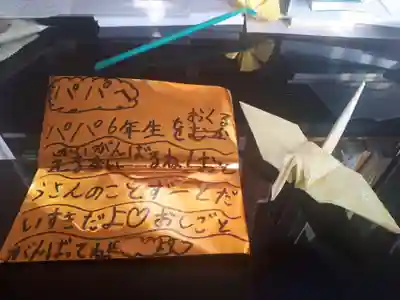 パパへ
パパ6年生をおくる
がんばるね
うさんのことずーとだ
いすきだよ♡おしごと
がんばってね